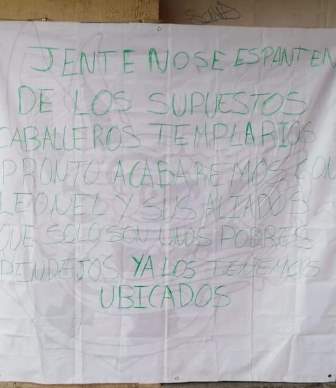 JENTE NOSE ESPANTEN
DE LOS SUPUESTOS
CABALLEROS TEMPLARIOS
PRONTO ACABAREMOS CON
LEONEL Y SUS ALIADOS
QUE SOLO SON UNOS POBRES
PINDEJOS YA LOS TENEMOS
UBICADOS